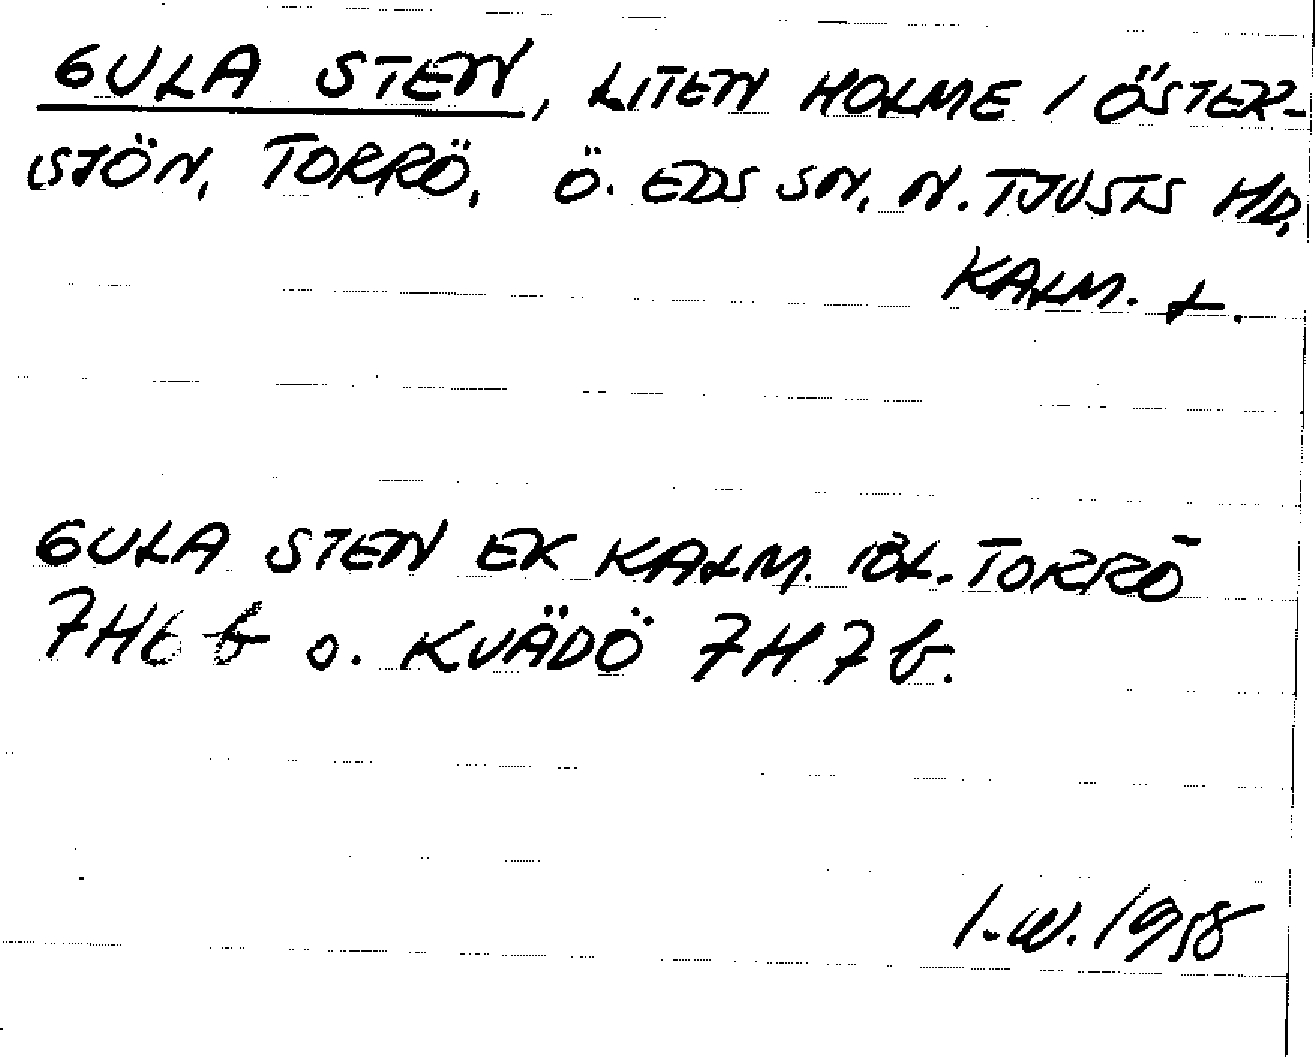 GULA STEN, LITEN HOLME I ÖSTER-
SJÖN, TORRÖ, Ö. EDS SN, N. TJUSTS HD,
KALM. L.
GULA STEN EK KALM. TORRÖ
7H6b o. KVÄDÖ 7H7b.
1958